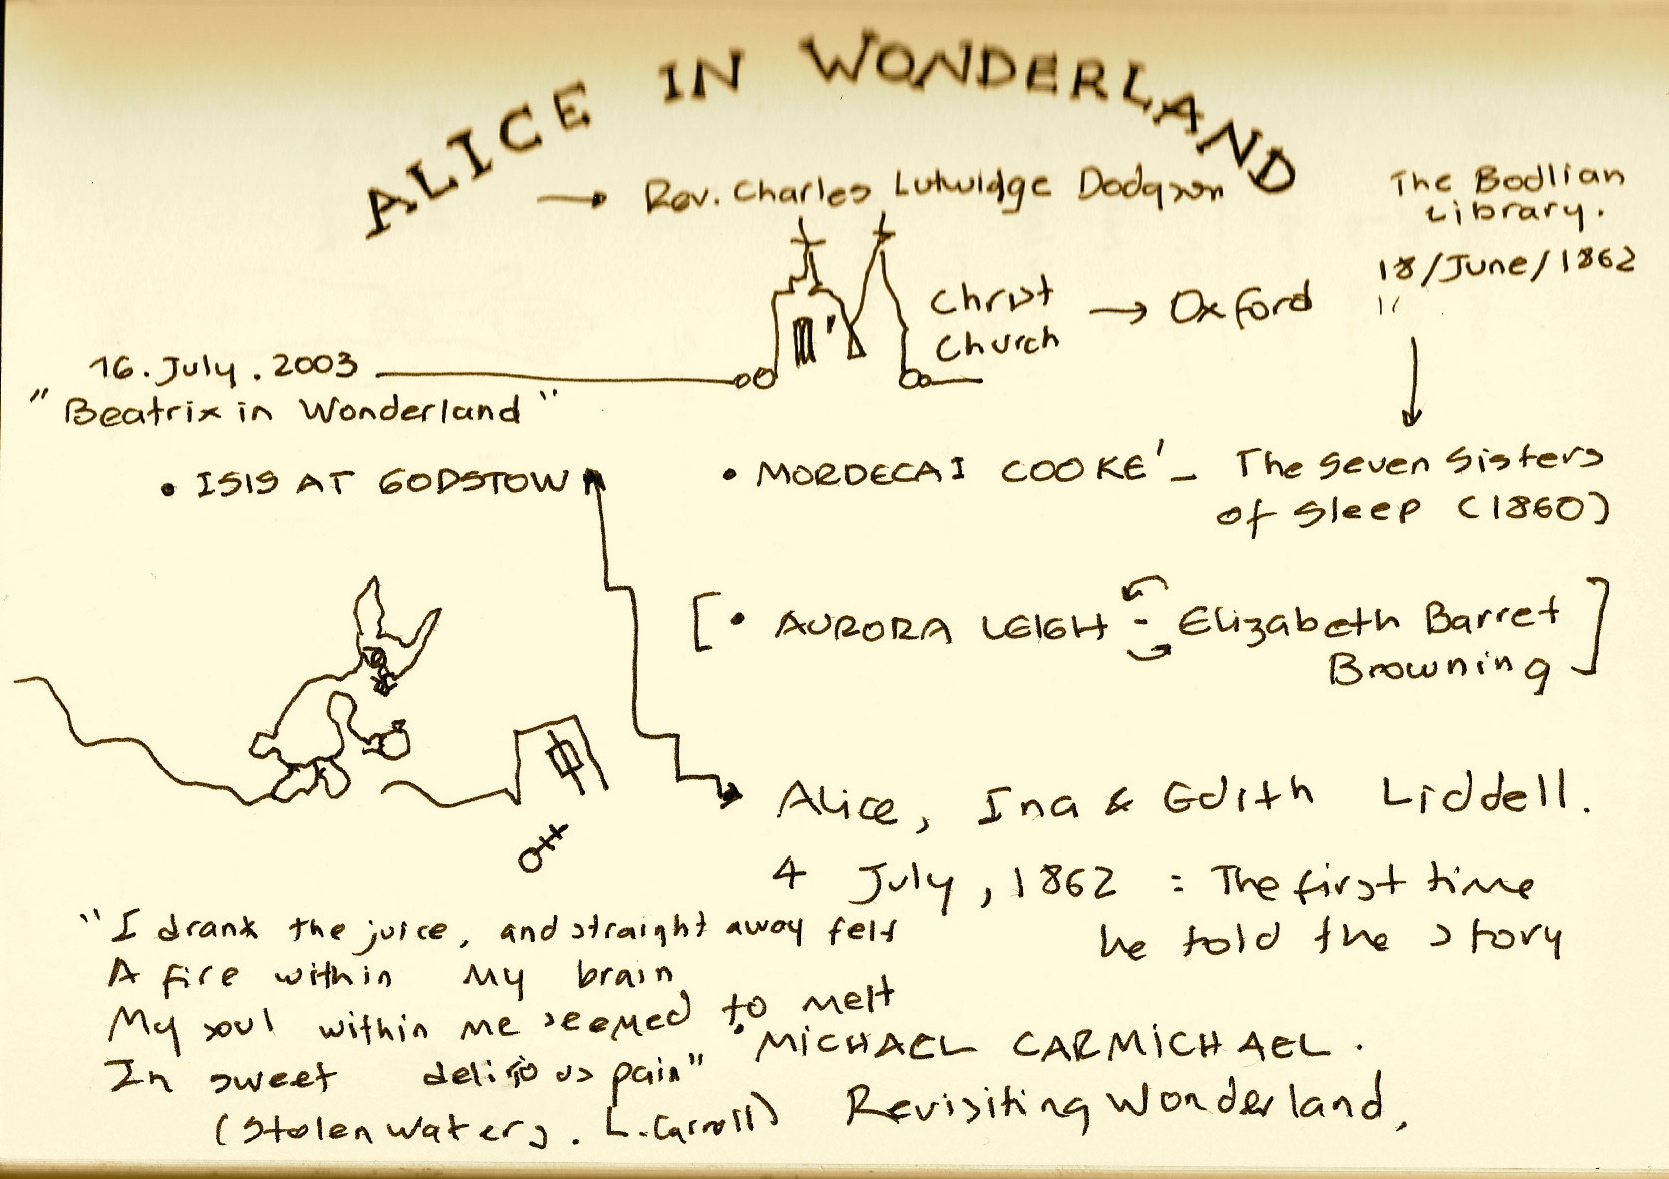 ALICE IN WONDERLAND
→ Rev. Charles Lutwidge Dodgson
The Bodlian
Library.
18/June/1862
"
Christ
Church → Oxford
16. July. 2003
"Beatrix in Wonderland"
• ISIS AT GODSTOW
• MORDECAI COOKE' - The Seven Sisters
of Sleep (1860)
[• AURORA LEIGH - Elizabeth Barret
Browning]
Alice, Ina & Edith Liddell.
4 July, 1862 : The first time
he told the story
"I drank the juice, and straight away felt
A fire within my brain
My soul within me seemed to melt
In sweet pain"
(Stolen Waters. L. Carroll)
• MICHAEL CARMICHAEL.
Revisiting Wonderland,